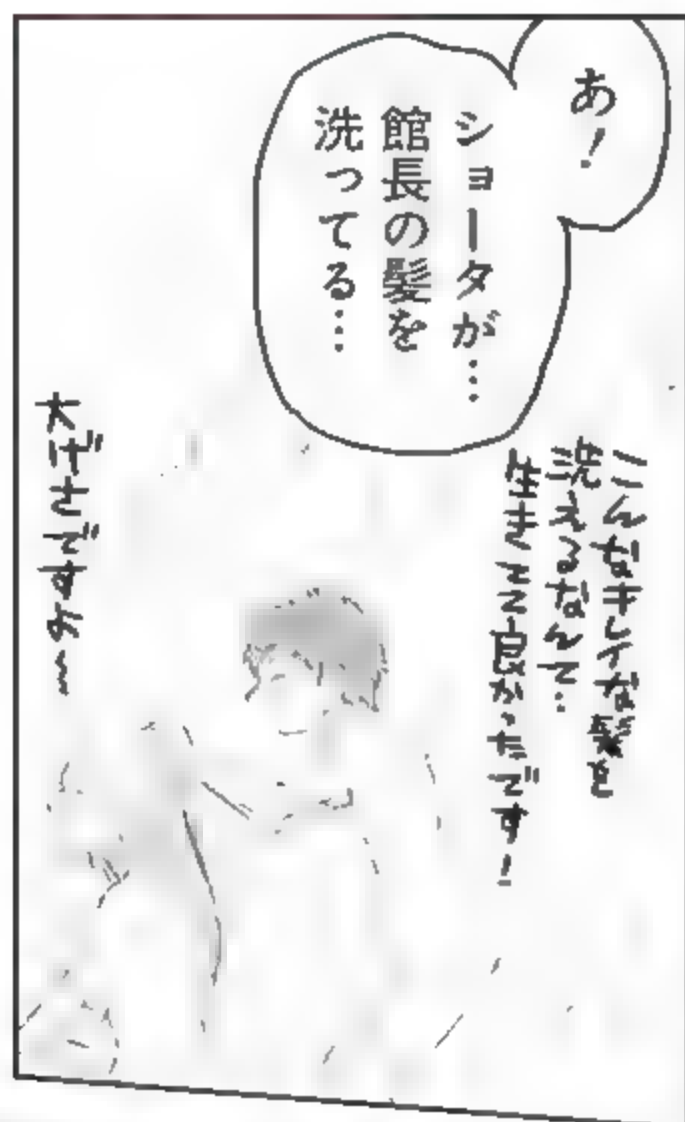 あ!
ショータが…
館長の髪を
洗ってる…
こんなキレイな髪を
洗えるなんて…
生きてて良かったです!
大げさですよ〜